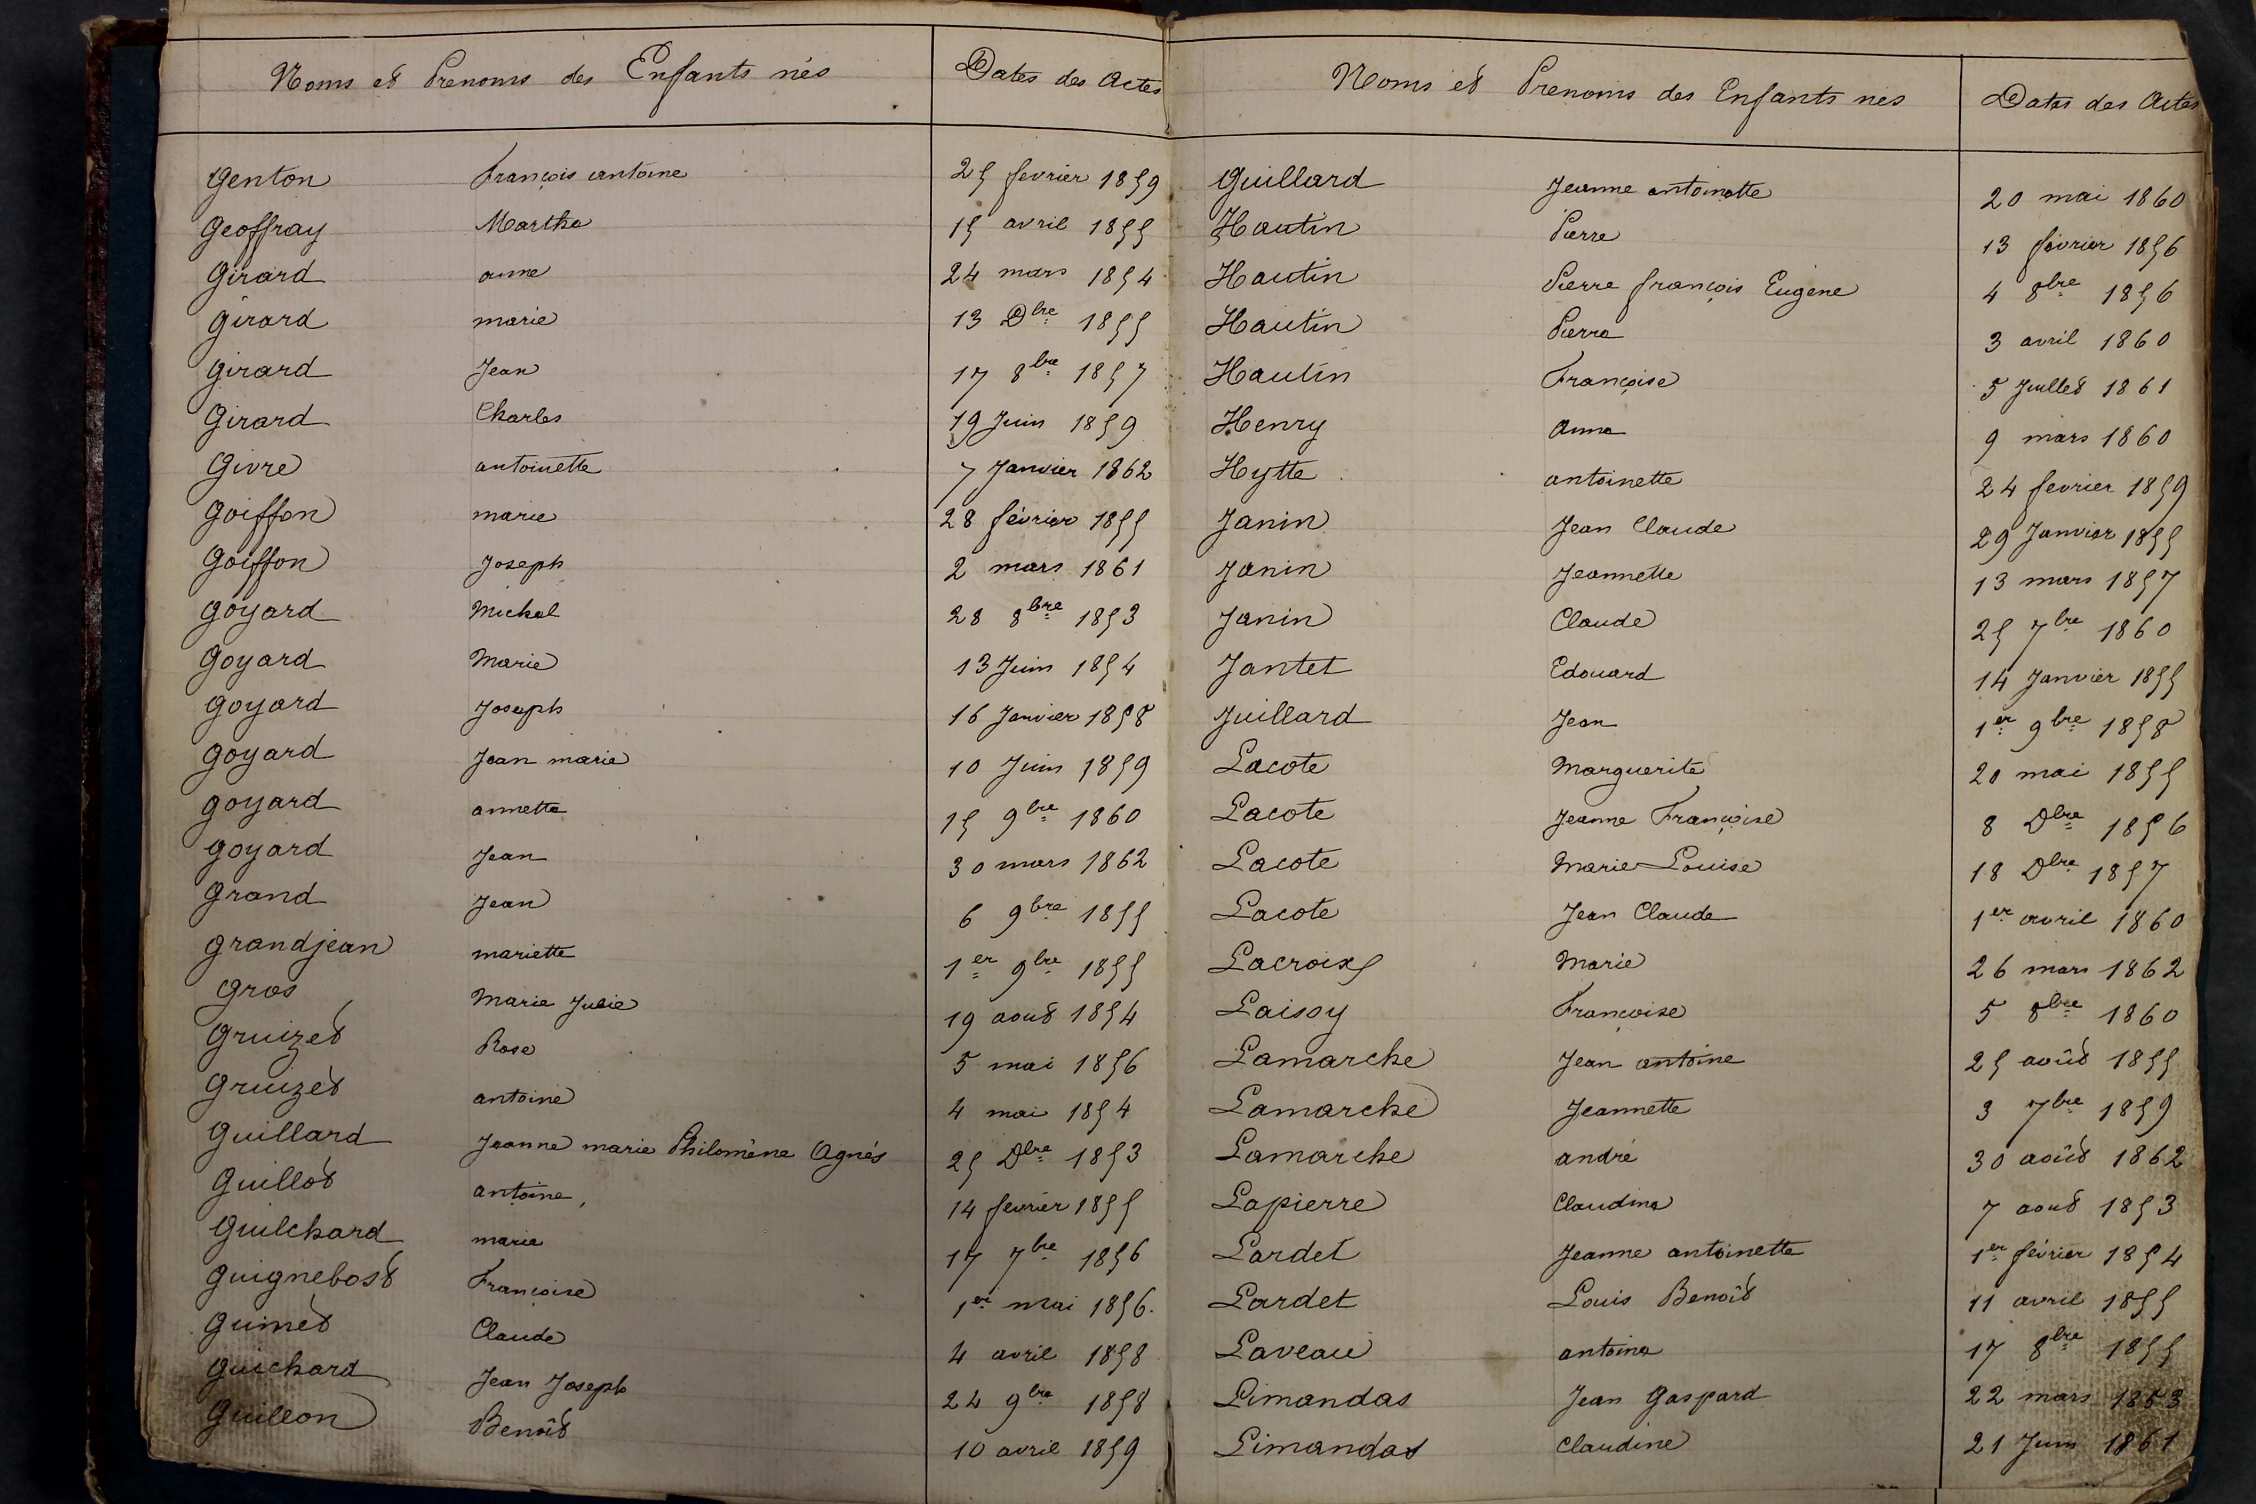 Noms et Prenoms des Enfants nés Dates des Actes
Genton François antoine 25 fevrier 1859
Geoffray Marthe 15 avril 1855
Girard anne 24 mars 1854
Girard marie 13 Dbre 1855
Girard Jean 17 8bre 1857
Girard Charles 19 Juin 1859
Givre antoinette 7 Janvier 1862
Goiffon marie 28 février 1855
Goiffon Joseph 2 mars 1861
Goyard Michel 28 8bre 1853
Goyard Marie 13 Juin 1854
Goyard Joseph 16 Janvier 1858
Goyard Jean marie 10 Juin 1859
Goyard annette 15 9bre 1860
Goyard Jean 30 mars 1862
Grand Jean 6 9bre 1855
Grandjean mariette 1er 9bre 1855
Gros Marie Julie 19 aout 1854
Gruizet Rose 5 mai 1856
Gruizet antoine 4 mai 1854
Guillard Jeanne marie Philomène Agnés 25 Dbre 1853
Guillot antoine, 14 fevrier 1855
Guilchard marie 17 7bre 1856
Guignebost Françoise 1er mai 1856.
Guimet Claude 4 avril 1858
Guichard Jean Joseph 24 9bre 1858
Guillon Benoît 10 avril 1859
Noms et Prenoms des Enfants nés Dates des Actes
Guillard Jeanne antoinette 20 mai 1860
Hautin Pierre 13 février 1856
Hautin Pierre françois Eugène 4 8bre 1856
Hautin Pierre 3 avril 1860
Hautin Françoise 5 Juillet 1861
Henry Anne 9 mars 1860
Hytte antoinette 24 fevrier 1859
Janin Jean Claude 29 Janvier 1855
Janin Jeannette 13 mars 1857
Janin Claude 25 7bre 1860
Jantet Edouard 14 Janvier 1855
Juillard Jean 1er 9bre 1858
Lacote Marguerite 20 mai 1855
Lacote Jeanne Françoise 8 Dbre 1856
Lacote Marie Louise 18 Dbre 1857
Lacote Jean Claude 1er avril 1860
Lacroix Marie 26 mars 1862
Laissy Françoise 5 8bre 1860
Lamarche Jean antoine 25 août 1855
Lamarche Jeannette 3 7bre 1859
Lamarche andré 30 août 1862
Lapierre Claudine 7 aout 1853
Lardet Jeanne antoinette 1er février 1854
Lardet Louis Benoît 11 avril 1855
Laveau antoine 17 8bre 1855
Limandas Jean Gaspard 22 mars 1853
Limandas Claudine 21 Juin 1861